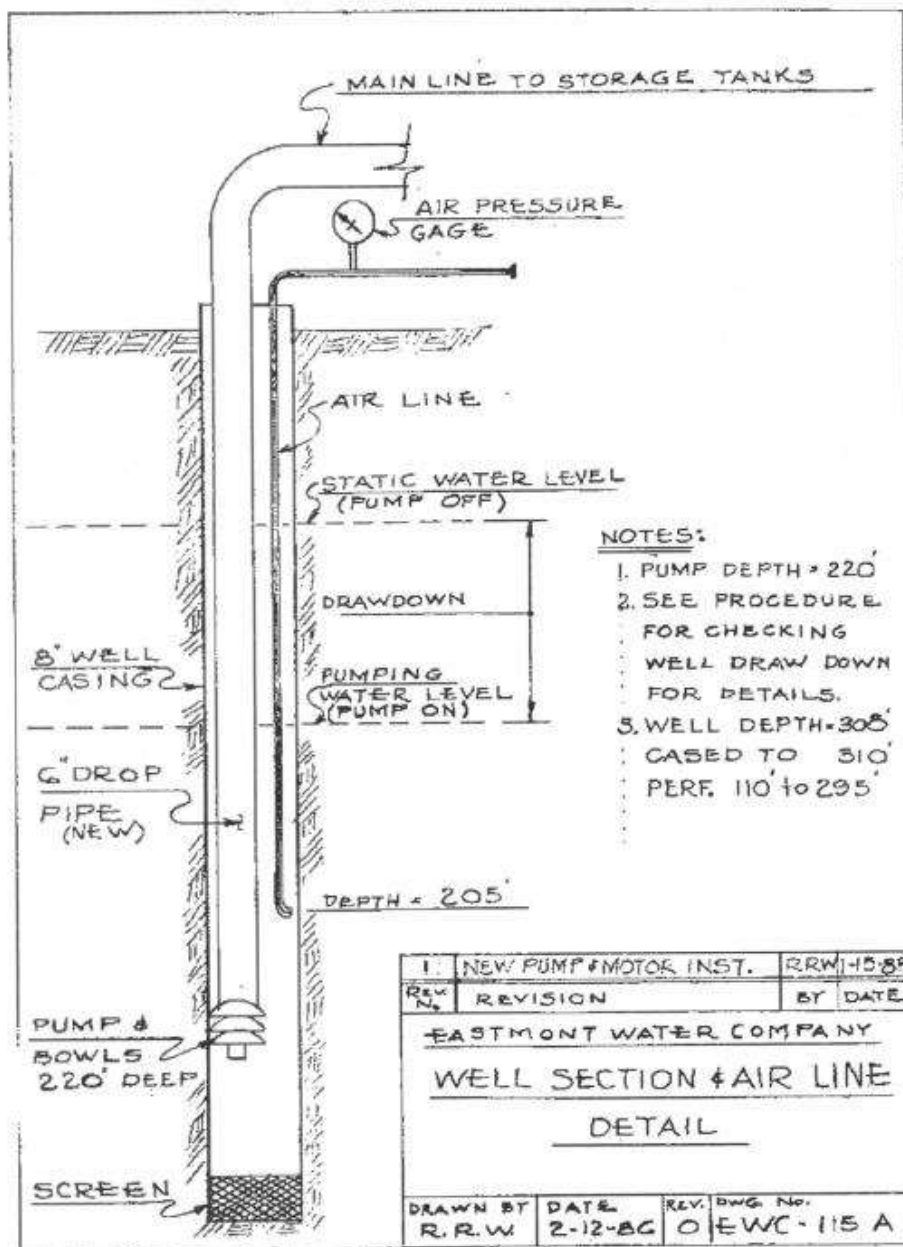 MAIN LINE TO STORAGE TANKS
AIR PRESSURE
GAGE
AIR LINE
STATIC WATER LEVEL
(PUMP OFF)
DRAWDOWN
8" WELL
CASING
PUMPING
WATER LEVEL
(PUMP ON)
6" DROP
PIPE
(NEW)
DEPTH = 205'
PUMP &
BOWLS
220' DEEP
SCREEN
NOTES:
1. PUMP DEPTH = 220'
2. SEE PROCEDURE
FOR CHECKING
WELL DRAW DOWN
FOR DETAILS.
3. WELL DEPTH = 308'
CASED TO 310'
PERF. 110' to 295'
1 NEW PUMP & MOTOR INST. RRW
REV. N. REVISION BY DATE
EASTMONT WATER COMPANY
WELL SECTION & AIR LINE
DETAIL
DRAWN BY
R.R.W.
DATE
2-12-86
REV.
0
DWG No.
EWC-115 A